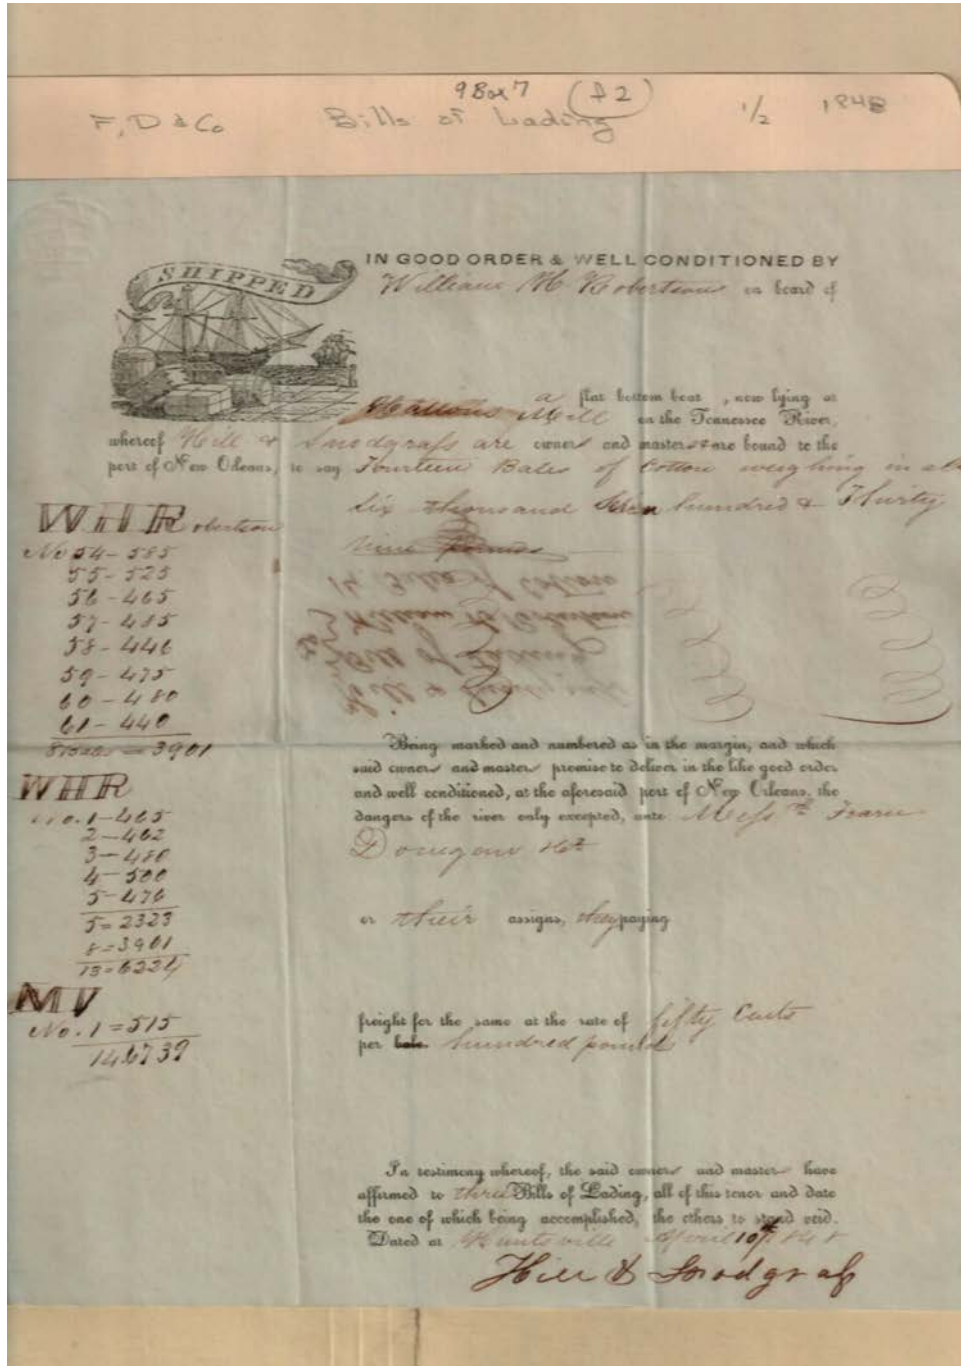 9 Box 7 (f2)
F, D & Co Bills of Lading 1/2 1848
SHIPPED
IN GOOD ORDER & WELL CONDITIONED BY
William H Robertson on board of
a flat bottom boat, now lying at
Mill on the Tennessee River,
whereof Hill & Snodgrass are owners and masters & are bound to the
port of New Orleans, to say Fourteen Bales of Cotton weighing in all
Six thousand Seven hundred & Thirty
Nine pounds
WHRobertson
No 54-585
55-525
56-465
57-485
58-446
59-475
60-480
61-440
8 Bales = 3901
14 Bales of Cotton
William H Robertson
Bill of Lading
Hill & Snodgrass
Being marked and numbered as in the margin, and which
said owners and masters promise to deliver in the like good order
and well conditioned, at the aforesaid port of New Orleans, the
dangers of the river only excepted, unto Mess
Donegan
or their assigns, they paying
WHR
No. 1-405
2-462
3-480
4-500
5-476
5=2323
8=3901
13=6224
MV
No. 1=515
14 6739
freight for the same at the rate of fifty Cents
per bale hundred pound
In testimony whereof, the said owners and masters have
affirmed to three Bills of Lading, all of this tenor and date
the one of which being accomplished, the others to stand void.
Dated at Huntsville April 10th 1848
Hill & Snodgrass